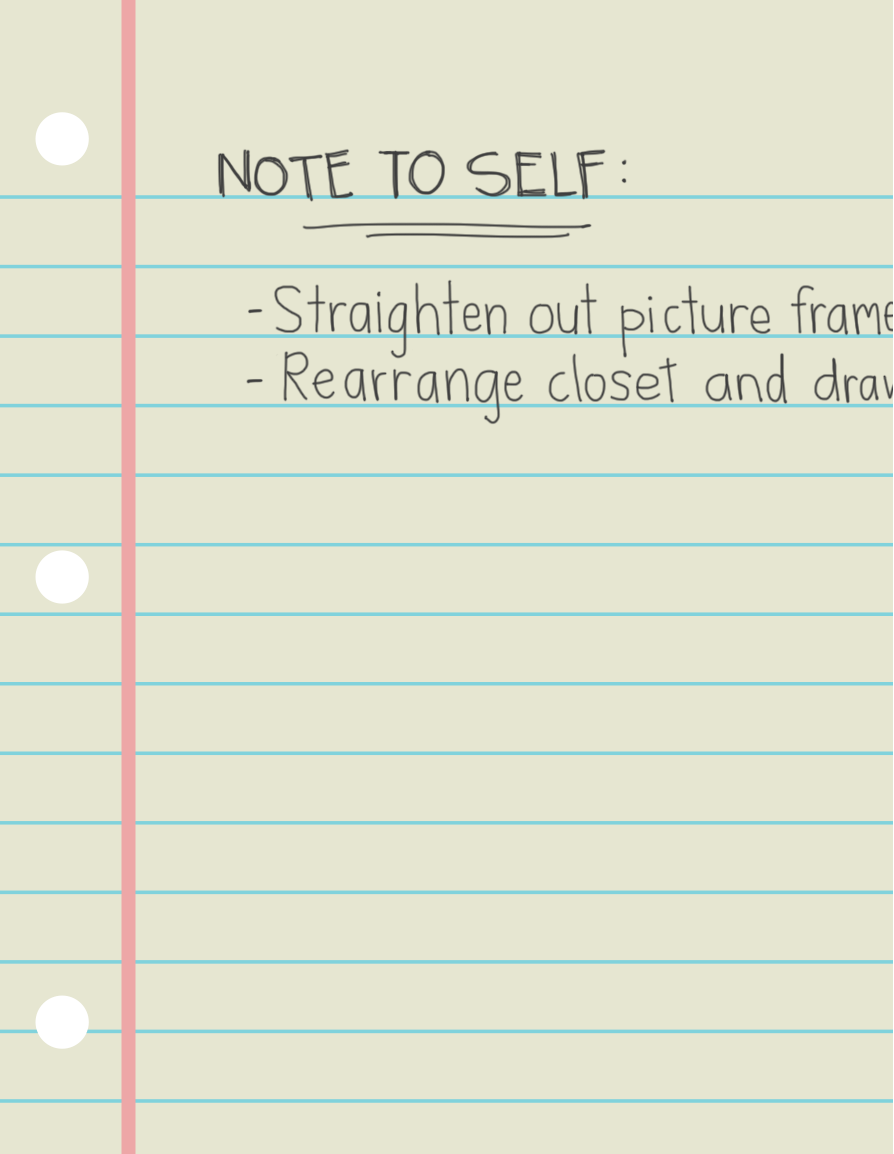 NOTE TO SELF:
- Straighten out picture frame
- Rearrange closet and